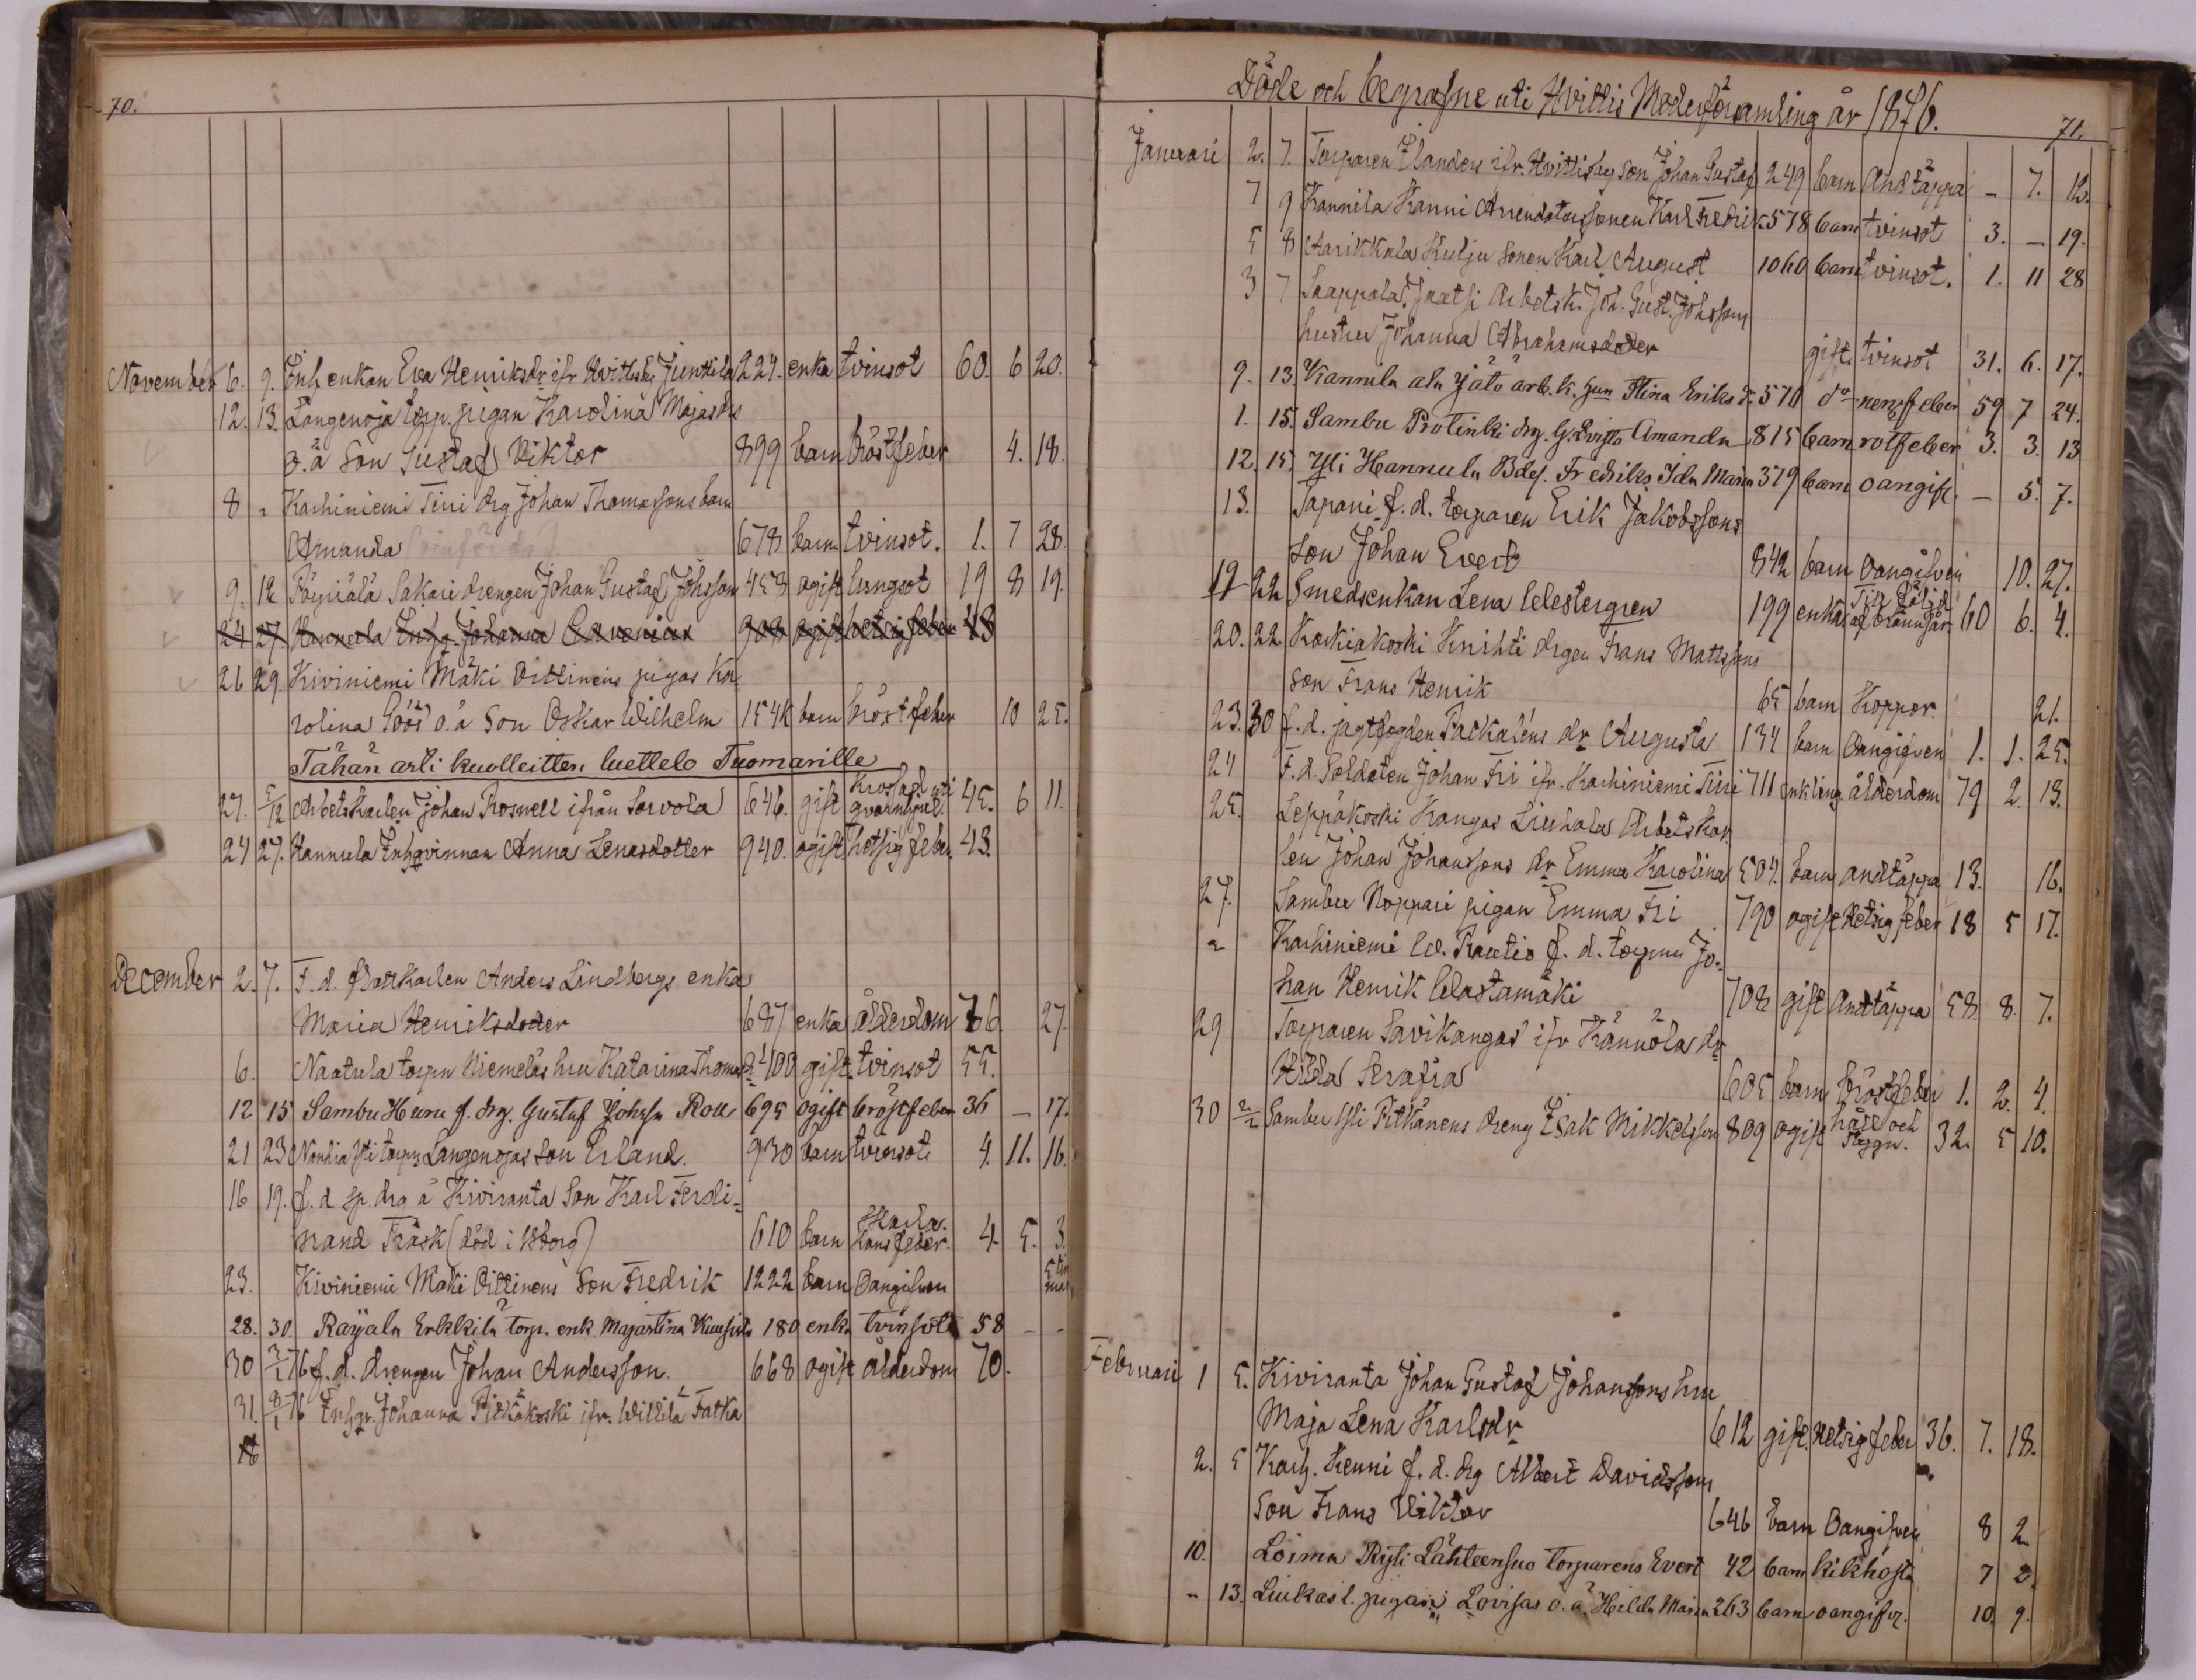 70.
November 6. 9. Inh enkan Eva Henriksdr ifr Hvittisby Junttila 224. enka tvinsot 60. 6 20.
12. 13. Längenoja torp. pigan Karolina Majasdrs
o.ä son Gustaf Viktor 899 barn bröstfeber 4. 18.
8 " Karhiniemi Tiiri drg Johan Thomassons barn
Amanda 678 barn tvinsot. 1. 7 28.
9. 12 Sakari drengen Johan Gustaf Johsson 458 ogift lungsot 19 8 19.
24 27. Hannula Inhs. Johanna 908 ogift hetsigfeber 48
26 29. Kiviniemi Mäki Vittinens pigas Ka-
rolina Göös o.ä Son Oskar Wilhelm 154k barn bröstfeber 10 25.
Tähän asti kuolleitten luettelo Tuomarille
27. 5/12 Arbetskarlen Johan Rosnell ifrån Sorvola 646. gift Krossad uti qvarnhjul. 45. 6 11.
24 27. Hannula Inhqvinnan Anna Lenasdotter 940. ogift hetsig feber 43.
December 2. 7. F. d. Rattkarlen Anders Lindbergs enka
Maria Henriksdoter 687 enka ålderdom 76 27.
6. Naatula torpn Niemeläs hru Katarina Thomasdr 400 gift. tvinsot 55.
12 15 Sambu Huru f. drg. Gustaf Johssn Rou 695 ogift bröstfeber 36 — 17.
21 23 Nanhia Yli torpn Längenojas son Erland. 930 barn tvinsot 4. 11. 16.
16 19. f. d. sp. drg ä Kiviranta Son Karl Ferdi-
nand Träsk (död i Wborg) 610 barn Skarlakansfeber. 4. 5. 3.
23. Kiviniemi Mäki Vittinens Son Fredrik 1222 barn Oangifven 5 tim
28. 30. Rayala Erkkilä torp. enk. Majastina Kuusisto 180 enka tvinsot 58 - -
30 3/1 76 f. d. drengen Johan Andersson. 668 ogift ålderdom 70.
31. 8/1 76 Inhqv. Johanna Pitkäkoski ifr. Willilä Fatka
Döde och begrafne uti Hvittis Moderförsamling år 1876.
71.
Januari 2. 7. Torparen Elanders ifr. Hvittisby son Johan Gustaf 249 barn Andtäppa — 7. 12.
7 9 Kannila Hanni Arrendatorssonen Karl Fredrik 578 barn tvinsot 3. — 19.
5 8 Karikkala Kulju sonen Karl August 1060 barn tvinsot. 1. 11 28
3 7 Saappala Jaatsi Arbetsk. Joh. Gust. Johssons
hustru Johanna Abrahamsdoter gift. tvinsot 31. 6. 17.
9. 13. Kannila ala Jätö arb.k. hun Stina Eriksd. 570 do nervfeber 59 7 24.
1. 15. Sambu Protinki drg. G. Amanda 815 barn rötfeber 3. 3. 13
12. 15. Yli Hannula Bdef. Fredriks Ida Maria 379 barn oangif. — 5. 7.
13. Tapani f. d. torparen Erik Jakobssons
son Johan Evert 842 barn Oangifven 10. 27.
19 22 Smedsenkan Lena Westergren 199 enka 60 6. 4.
20. 22. Korkiakoski Knihti drgen Frans Mattssons
son Frans Henrik 65 barn Koppor. 21.
23. 30 f. d. jagtfogden Packaléns dr Augusta 134 barn Oangifven 1. 1. 25.
24 F. d. Soldaten Johan Fri ifr. Karhiniemi Tiiri 711 enkling. ålderdom 79 2. 13.
25. Leppäkoski Kangas Liuhala Arbetskar
len Johan Johanssons dr Emma Karolina 504. barn andtäppa 13. 16.
27. Sambu Noppari pigan Emma Fri 790 ogift Hetsig feber 18 5 17.
" Karhiniemi W. Rautio f. d. torpnn Jo-
han Henrik Wastamäki 708 gift Andtäppa 58. 8. 7.
29 Torparen Savikangas ifr Kännölä dr
Hilda Serafia 605 barn bröstfeber 1. 2. 4.
30 2/2 Sambu Yli Pitkänens dreng Isak Mikkelsson 809 ogift håll och stygn. 32. 5 10.
Februari 1 5. Kiviranta Johan Gustaf Johanssons hru
Maja Lena Karlsdr 612 gift. Hetsigfeber 36. 7. 18.
2. 5 Karh. Kenni f. d. drg Albert Davidsson
Son Frans Viktor 646 barn Oangifven 8 2
10. Loima Ryti Lähteensuo torparens Evert 42 barn kikhosta 7 2.
" 13. Luikas l. pigan Lovisas o.ä. Hilda Maria 263 barn oangifv. 10. 9.